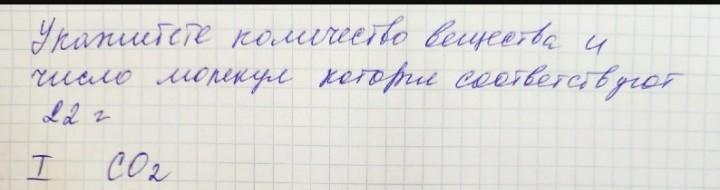 Укажитете количество вещества и
число молекул которые соответствуют
22 г
I CO₂